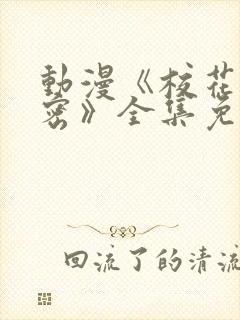 動漫《校花
密》全集免
回流了的清流